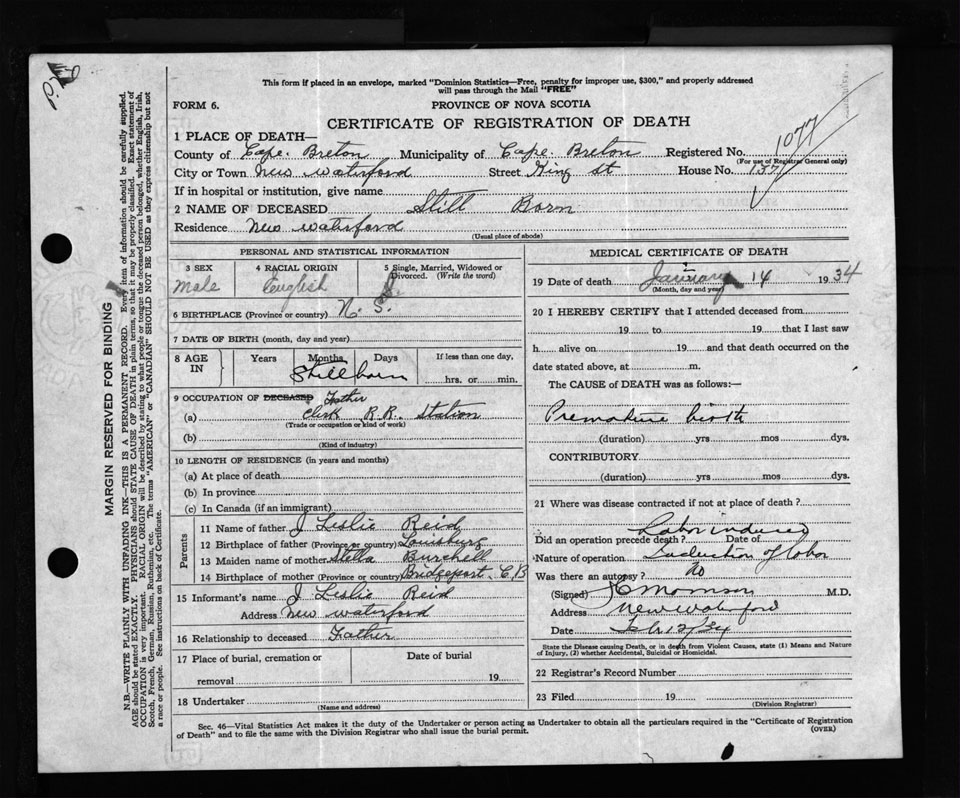 This form if placed in an envelope, marked "Dominion Statistics—Free, penalty for improper use, $300," and properly addressed
will pass through the Mail "FREE"
FORM 6.
PROVINCE OF NOVA SCOTIA
CERTIFICATE OF REGISTRATION OF DEATH
1077
1 PLACE OF DEATH—
County of Cape Breton Municipality of Cape Breton Registered No.
(For use of Registrar General only)
City or Town New Waterford Street King St House No. 137
If in hospital or institution, give name
2 NAME OF DECEASED Still Born
Residence New Waterford
(Usual place of abode)
PERSONAL AND STATISTICAL INFORMATION
3 SEX 4 RACIAL ORIGIN 5 Single, Married, Widowed or Divorced. (Write the word)
Male English S
6 BIRTHPLACE (Province or country) N. S.
7 DATE OF BIRTH (month, day and year)
8 AGE IN Years Months Days If less than one day,
Stillborn hrs. or min.
9 OCCUPATION OF DECEASED Father
(a) Clerk R.R. Station
(Trade or occupation or kind of work)
(b)
(Kind of industry)
10 LENGTH OF RESIDENCE (in years and months)
(a) At place of death
(b) In province
(c) In Canada (if an immigrant)
Parents
11 Name of father J Leslie Reid
12 Birthplace of father (Province or country) Louisburg
13 Maiden name of mother Stella Burchell
14 Birthplace of mother (Province or country) Bridgeport C B
15 Informant's name J Leslie Reid
Address New Waterford
16 Relationship to deceased Father
17 Place of burial, cremation or removal Date of burial
19
18 Undertaker
(Name and address)
MEDICAL CERTIFICATE OF DEATH
19 Date of death January 14 1934
(Month, day and year)
20 I HEREBY CERTIFY that I attended deceased from
19 to 19 that I last saw
h alive on 19 and that death occurred on the
date stated above, at m.
The CAUSE of DEATH was as follows:—
Premature birth
(duration) yrs mos dys.
CONTRIBUTORY
(duration) yrs mos dys.
21 Where was disease contracted if not at place of death?
Labor induced
Did an operation precede death? Date of
Nature of operation Induction of labor
Was there an autopsy? No
(Signed) M.D.
Address New Waterford
Date Feb 12/34
State the Disease causing Death, or in death from Violent Causes, state (1) Means and Nature
of Injury, (2) whether Accidental, Suicidal or Homicidal.
22 Registrar's Record Number
23 Filed 19
(Division Registrar)
Sec. 46—Vital Statistics Act makes it the duty of the Undertaker or person acting as Undertaker to obtain all the particulars required in the "Certificate of Registration
of Death" and to file the same with the Division Registrar who shall issue the burial permit. (OVER)
MARGIN RESERVED FOR BINDING
N.B.—WRITE PLAINLY WITH UNFADING INK—THIS IS A PERMANENT RECORD. Every item of information should be carefully supplied.
AGE should be stated EXACTLY. PHYSICIANS should STATE CAUSE OF DEATH in plain terms, so that it may be properly classified. Exact statement of
OCCUPATION is very important. RACIAL ORIGIN will be described by stating to what people or tongue the deceased person belonged, whether English, Irish,
Scotch, French, German, Russian, Ruthenian, etc. The terms "AMERICAN" or "CANADIAN" SHOULD NOT BE USED as they express citizenship but not
a race or people. See instructions on back of Certificate.